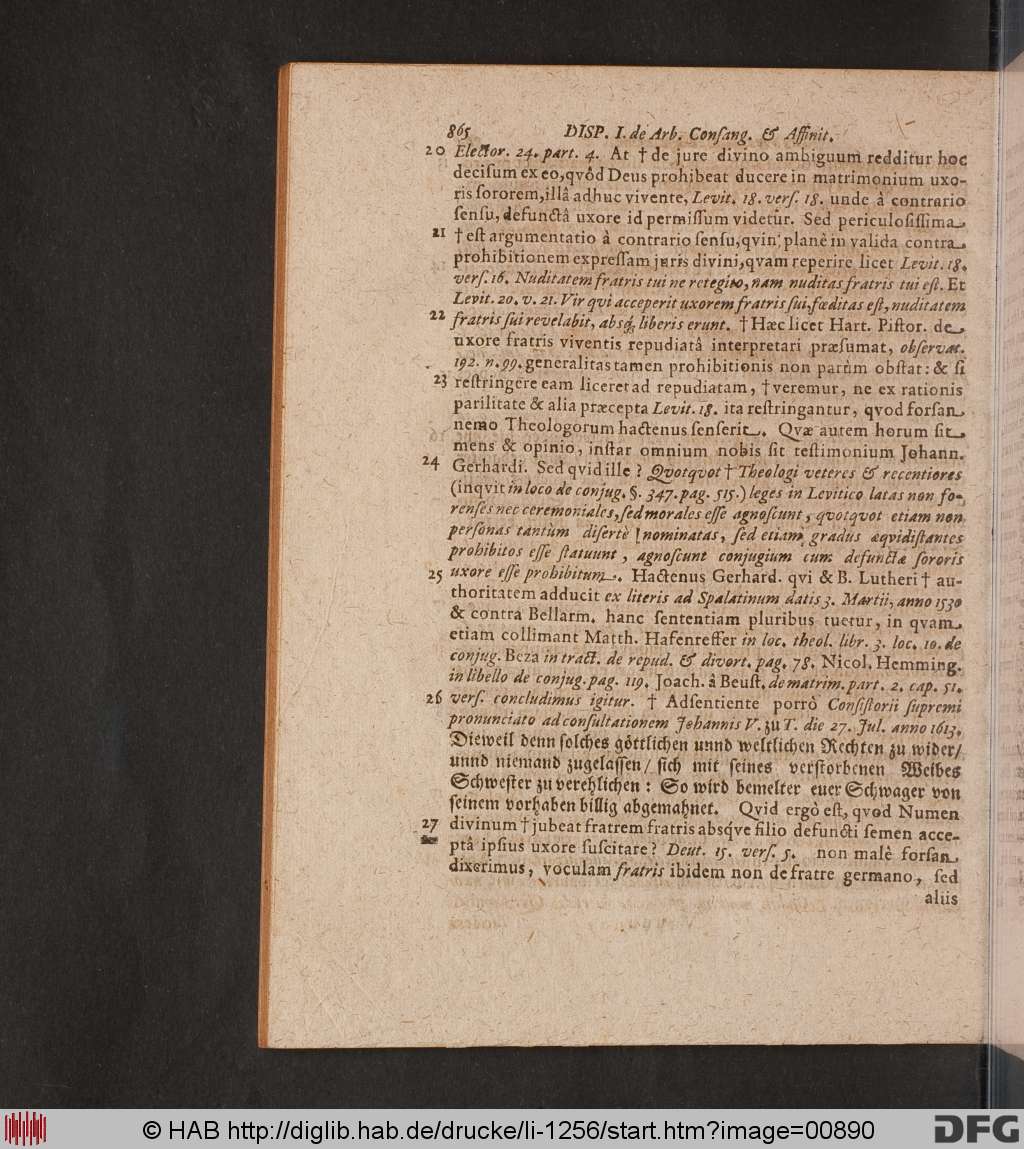 865 DISP. I. de Arb. Consang. & Affinit.
20 Elector. 24. part. 4. At † de jure divino ambiguum redditur hoc
decisum ex eo, qvôd Deus prohibeat ducere in matrimonium uxo-
ris sororem, illâ adhuc vivente, Levit. 18. vers. 18. unde à contrario
sensu, defunctâ uxore id permissum videtur. Sed periculosissima
21 † est argumentatio à contrario sensu, qvin planè in valida contra
prohibitionem expressam juris divini, qvam reperire licet Levit. 18.
vers. 16. Nuditatem fratris tui ne retegito, nam nuditas fratris tui est. Et
Levit. 20. v. 21. Vir qvi acceperit uxorem fratris sui, fœditas est, nuditatem
22 fratris sui revelabit, absq́, liberis erunt. † Hæc licet Hart. Pistor. de
uxore fratris viventis repudiatâ interpretari præsumat, observat.
192. n. 99. generalitas tamen prohibitionis non parùm obstat: & si
23 restringere eam liceret ad repudiatam, † veremur, ne ex rationis
parilitate & alia præcepta Levit. 18. ita restringantur, qvod forsan
nemo Theologorum hactenus senserit. Qvæ autem horum sit
mens & opinio, instar omnium nobis sit testimonium Johann.
24 Gerhardi. Sed qvid ille? Qvotqvot † Theologi veteres & recentiores
(inqvit in loco de conjug. §. 347. pag. 515.) leges in Levitico latas non fo-
renses nec ceremoniales, sed morales esse agnoscunt, qvotqvot etiam non
personas tantùm disertè nominatas, sed etiam gradus æqvidistantes
prohibitos esse statuunt, agnoscunt conjugium cum defunctæ sororis
25 uxore esse prohibitum. Hactenus Gerhard. qvi & B. Lutheri † au-
thoritatem adducit ex literis ad Spalatinum datis 3. Martii, anno 1530
& contra Bellarm. hanc sententiam pluribus tuetur, in qvam
etiam collimant Matth. Hafenreffer in loc. theol. libr. 3. loc. 10. de
conjug. Beza in tract. de repud. & divort. pag. 78. Nicol. Hemming.
in libello de conjug. pag. 119. Joach. â Beust. de matrim. part. 2. cap. 51.
26 vers. concludimus igitur. † Adsentiente porrò Consistorii supremi
pronunciato ad consultationem Johannis V. zu T. die 27. Jul. anno 1613.
Dieweil denn solches göttlichen unnd weltlichen Rechten zu wider/
unnd niemand zugelassen/ sich mit seines verstorbenen Weibes
Schwester zu verehlichen: So wird bemelter euer Schwager von
seinem vorhaben billig abgemahnet. Qvid ergò est, qvod Numen
27 divinum † jubeat fratrem fratris absq́ve filio defuncti semen acce-
ptâ ipsius uxore suscitare? Deut. 15. vers. 5. non malè forsan
dixerimus, voculam fratris ibidem non de fratre germano, sed
aliis
© HAB http://diglib.hab.de/drucke/li-1256/start.htm?image=00890
DFG